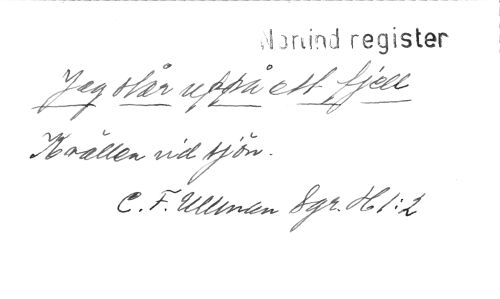 Norlind register
Jag står uppå ett fjell
Kvällen vid sjön.
C. F. Ullman Sgr. H 1:2